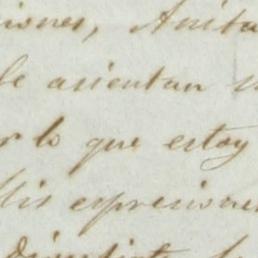 iones, Anita
le asientan
r lo que estoy
Mis expresiones